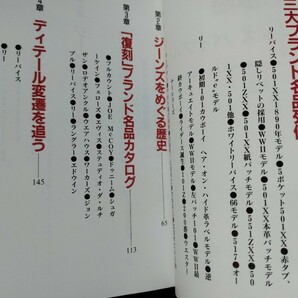 三大ブランド名品列伝
リーバイス●501XX1890年モデル●5ポケット501XX●赤タブ、
隠しリベットの採用●WWⅡモデル●501XX本革パッチモデル
●501ZXX●501XX紙パッチモデル●551ZXX●505
1XX・501・他●ホワイトリーバイス●66モデル●517●オー
ルド“e”モデル
リー
●初期101カウボーイ ヘア・オン・ハイド革ラベルモデル●逆
アーキュエイトモデル●WWⅡモデル●左パッチ101
紺カウボーイ●ライダーズ誕生●101Z●200番●ウエスター
65
第2章
ジーンズをめぐる歴史
113
第3章
「復刻」ブランド名品カタログ
フルカウント●JOE McCOY●デニーム●シュガ
ーケイン●フェローズ●エヴィス●ステュディオ・ダ・ルチ
ザン●ロデオアンクル●ウエアハウス●ワーカーズ●ジョン
ブル●リーバイス●リー●ラングラー●エドウイン
145
4章
ディテール変遷を追う
●リーバイス
●リー